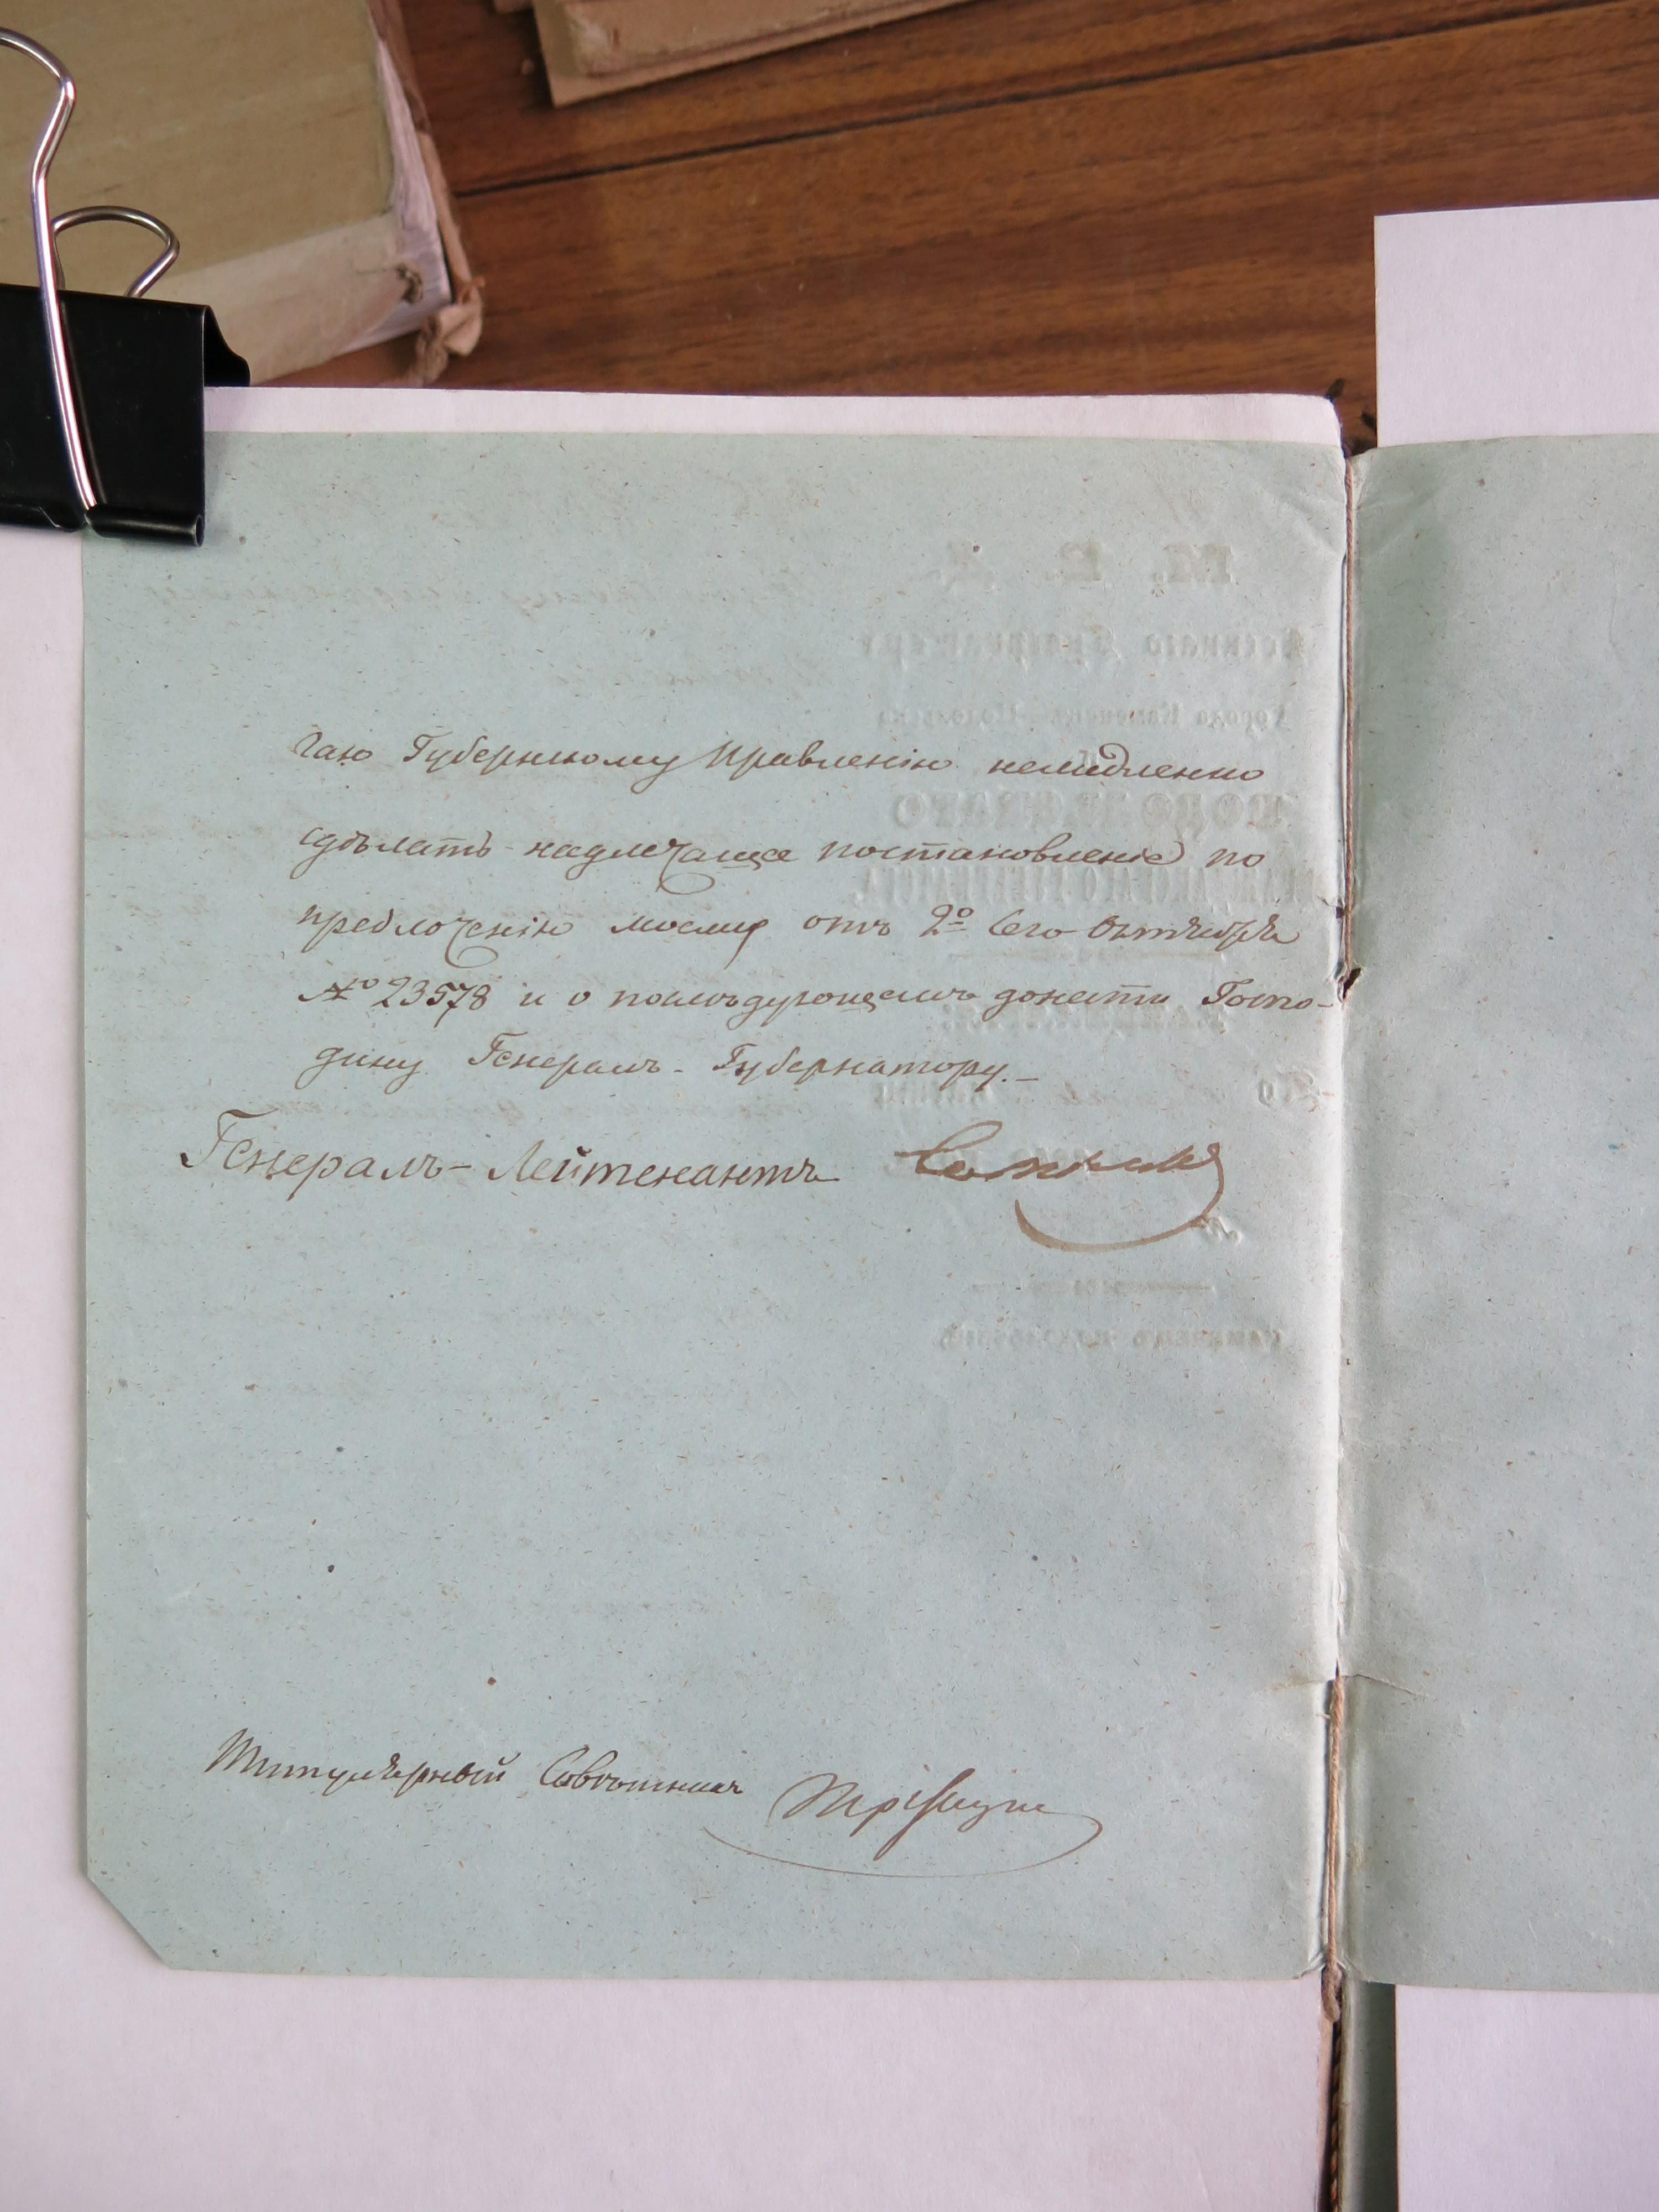 гаю Губернскому Правленію немедленно
сдѣлать надлежащее постановленіе по
предложенію моему отъ 2º сего Октября
№ 23578 и о послѣдующемъ донести Госпо-
дину Генералъ-Губернатору.—
Генералъ-Лейтенантъ
Титулярный Совѣтникъ